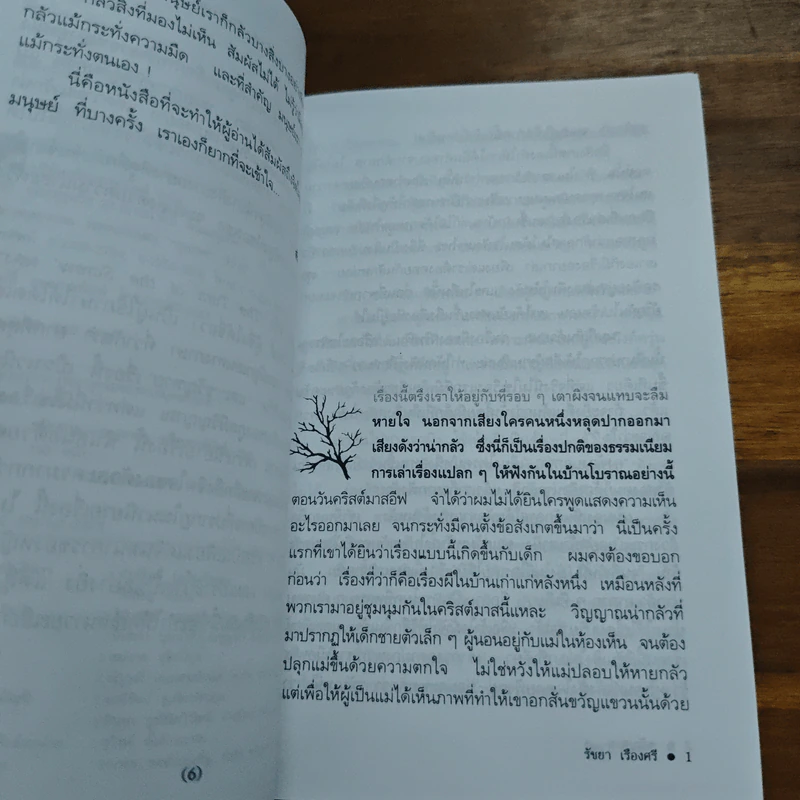 นุษย์เราก็กลัวบางสิ่งบาง
กลัวสิ่งที่มองไม่เห็น สัมผัสไม่ได้
กลัวแม้กระทั่งความมืด และที่สำคัญ
แม้กระทั่งตนเอง !
นี่คือหนังสือที่จะทำให้ผู้อ่านได้สัมผัส
มนุษย์ ที่บางครั้ง เราเองก็ยากที่จะเข้าใจ...
(6)
เรื่องนี้ตรึงเราให้อยู่กับที่รอบ ๆ เตาผิงจนแทบจะลืม
หายใจ นอกจากเสียงใครคนหนึ่งหลุดปากออกมา
เสียงดังว่าน่ากลัว ซึ่งนี่ก็เป็นเรื่องปกติของธรรมเนียม
การเล่าเรื่องแปลก ๆ ให้ฟังกันในบ้านโบราณอย่างนี้
ตอนวันคริสต์มาสอีฟ จำได้ว่าผมไม่ได้ยินใครพูดแสดงความเห็น
อะไรออกมาเลย จนกระทั่งมีคนตั้งข้อสังเกตขึ้นมาว่า นี่เป็นครั้ง
แรกที่เขาได้ยินว่าเรื่องแบบนี้เกิดขึ้นกับเด็ก ผมคงต้องขอบอก
ก่อนว่า เรื่องที่ว่าก็คือเรื่องผีในบ้านเก่าแก่หลังหนึ่ง เหมือนหลังที่
พวกเรามาอยู่ชุมนุมกันในคริสต์มาสนี้แหละ วิญญาณน่ากลัวที่
มาปรากฏให้เด็กชายตัวเล็ก ๆ ผู้นอนอยู่กับแม่ในห้องเห็น จนต้อง
ปลุกแม่ขึ้นด้วยความตกใจ ไม่ใช่หวังให้แม่ปลอบให้หายกลัว
แต่เพื่อให้ผู้เป็นแม่ได้เห็นภาพที่ทำให้เขาอกสั่นขวัญแขวนนั้นด้วย
รัชยา เรืองศรี ● 1